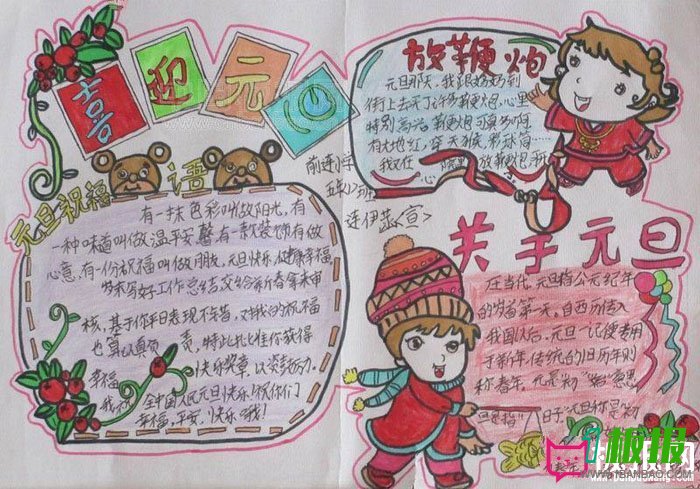 喜迎元旦
元旦祝福语
有一抹色彩叫做阳光,有
一种味道叫做温馨
心意,有一份祝福叫做朋友,元旦快乐,健康幸福
岁末写好工作总结交给新春拿来审
核,基于你平日表现不错,对我的祝福
也算认真负责,特此批准你获得
幸福快乐奖章,以资鼓励.
我祝全中国人民元旦快乐!祝你们
幸福,平安,快乐哦!
前进小学
五年(2)班
连伊萘宣
放鞭炮
元旦那天,我跟妈妈到
街上去买了许多鞭炮,心里
特别高兴.鞭炮可真多啊,
有大地红,穿天猴,彩珠筒…
我又在
放鞭炮
关于元旦
在当代,元旦指公元纪年
的岁首第一天.自西历传入
我国以后,元旦一词便专用
于新年,传统的旧历年则
称春年.元是"初""始"意思
旦是指"日子"元旦称是"初
板报网
WWW.1BANBAO.COM